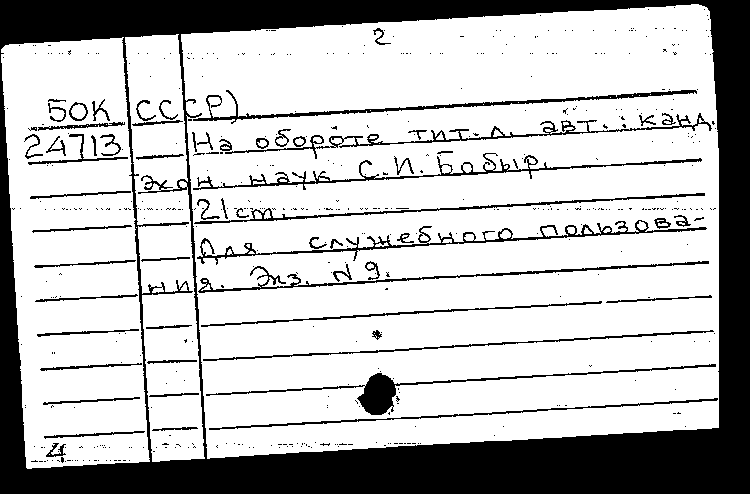 2
БОК СССР).
24713 На обороте тит. л. авт.: канд.
экон. наук С.И. Бобыр.
21 ст.
Для служебного пользова-
ния. Экз. N 9.
4